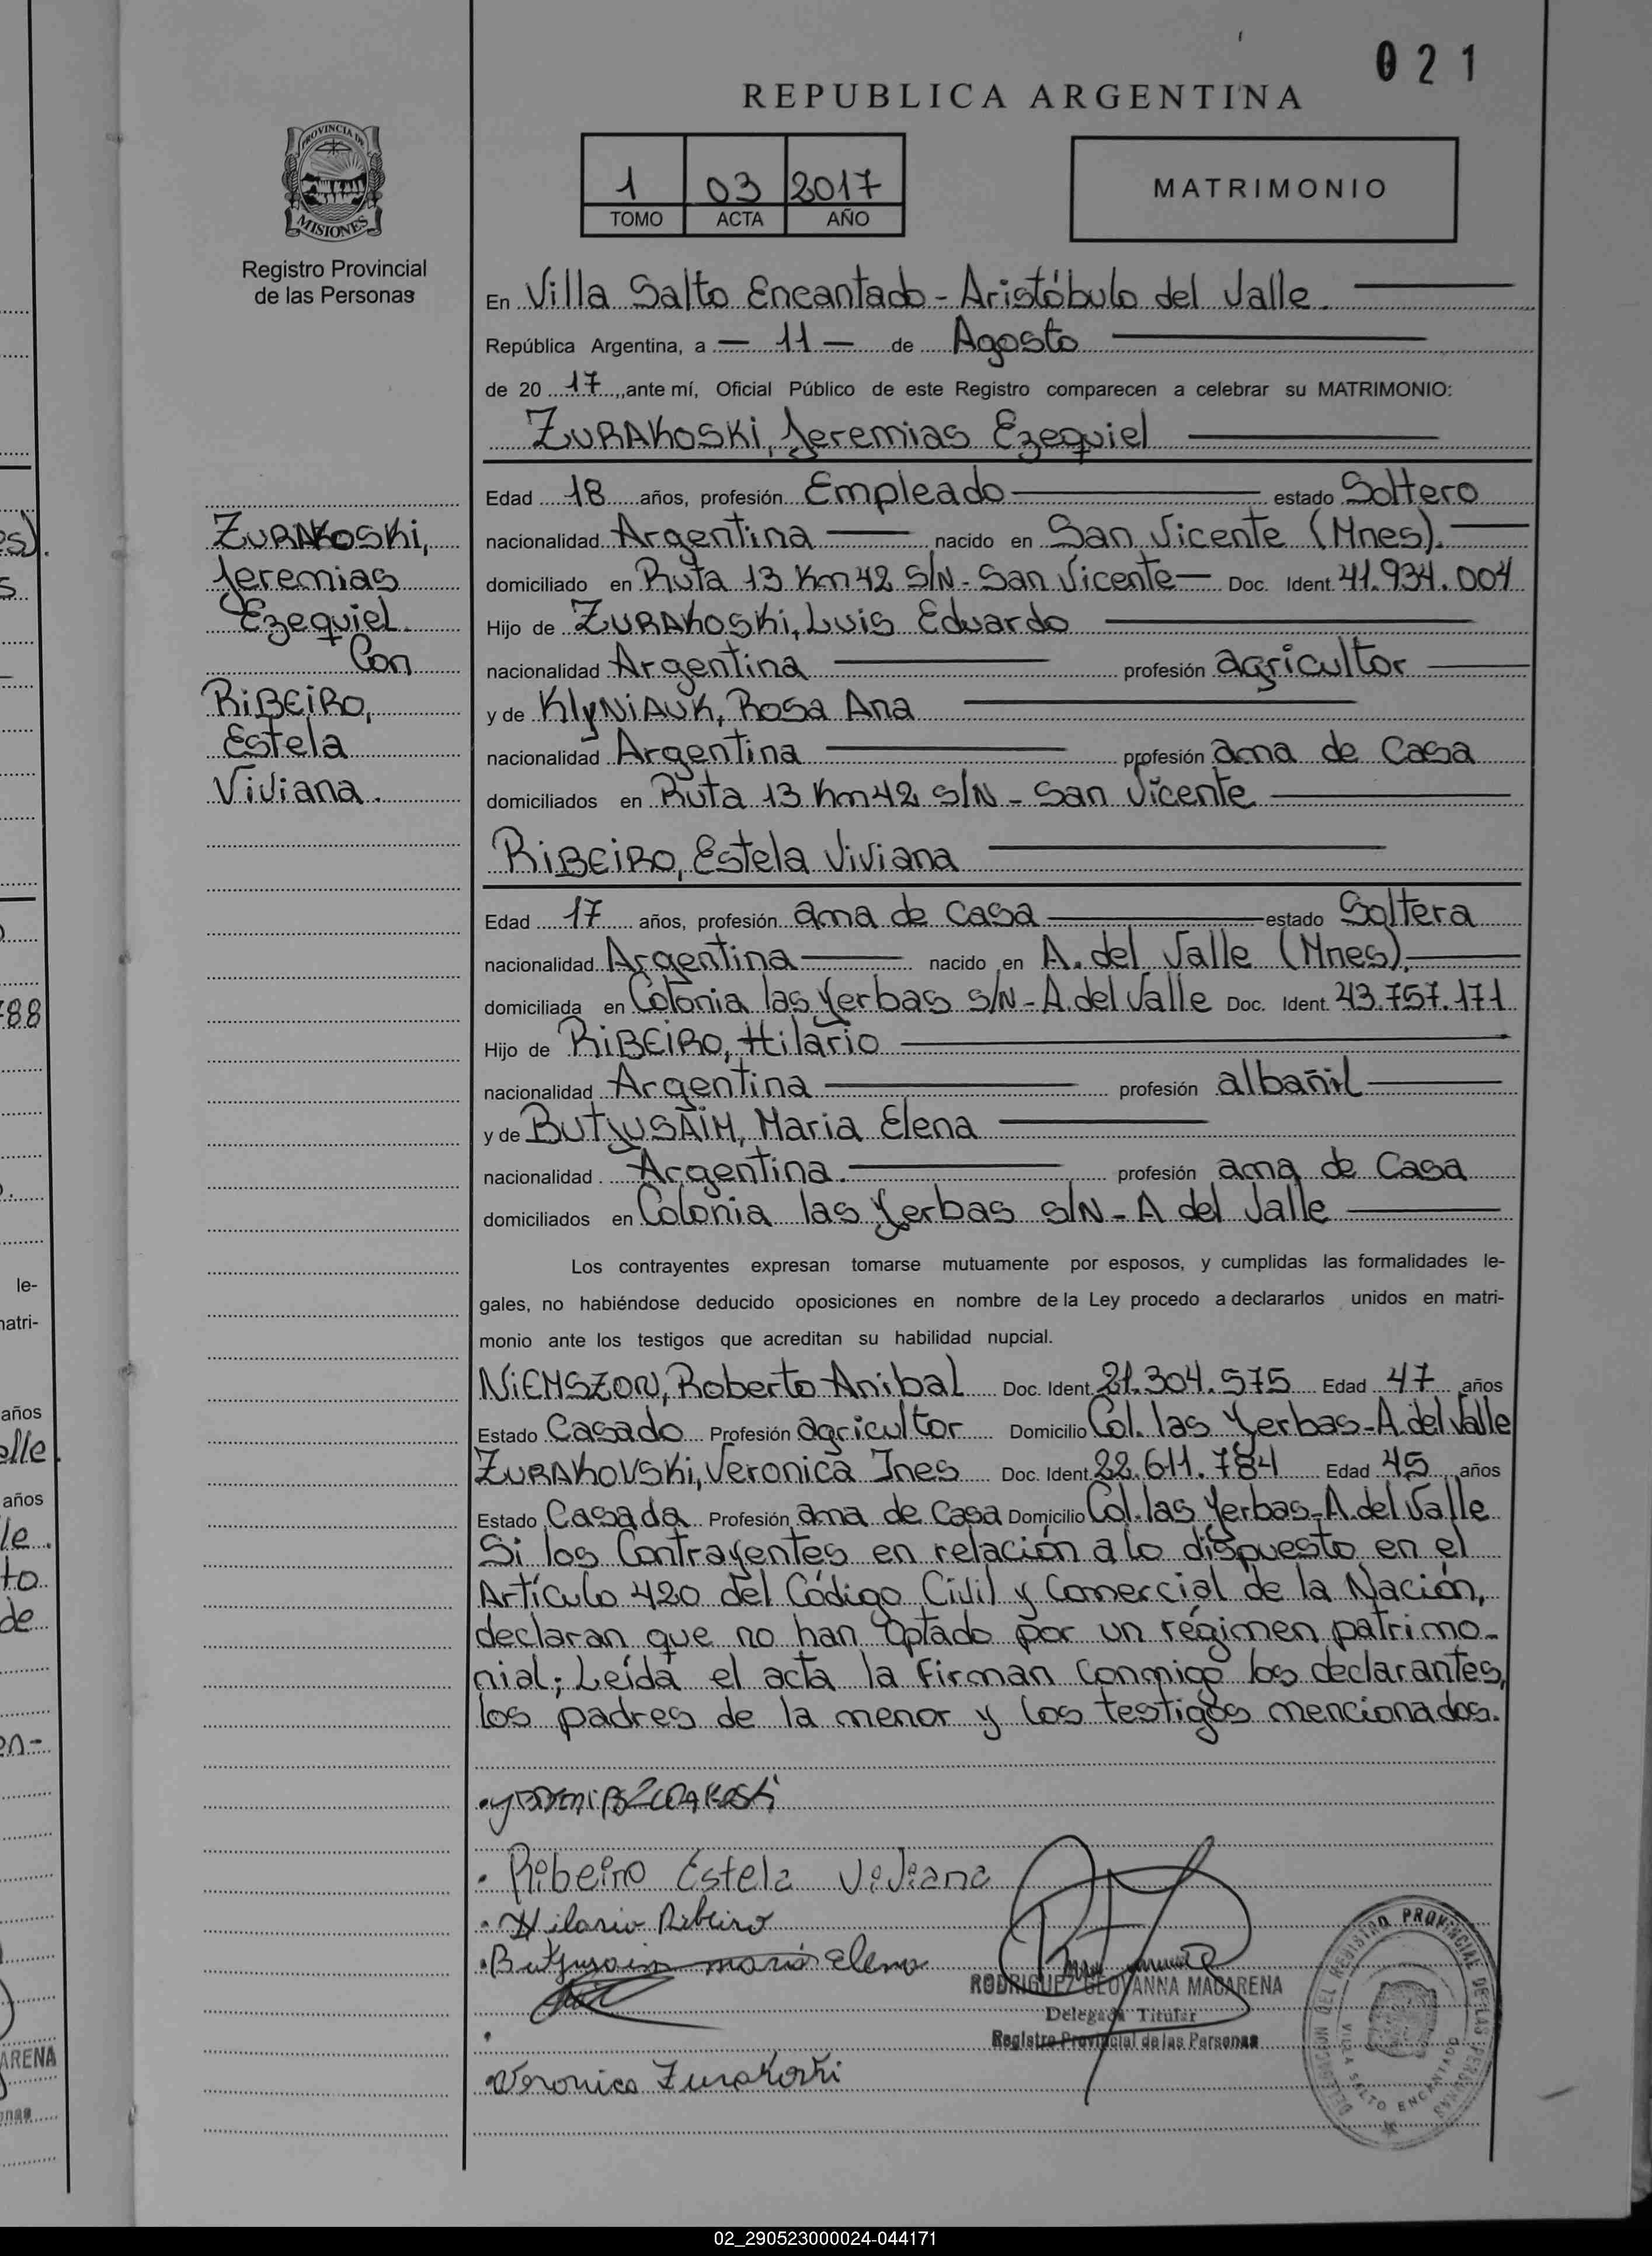 021
REPUBLICA ARGENTINA
PROVINCIA DE
MISIONES
Registro Provincial
de las Personas
1 03 2017
TOMO ACTA AÑO
MATRIMONIO
En Villa Salto Encantado - Aristóbulo del Valle.
República Argentina, a — 11 — de Agosto
de 20 17, ante mí, Oficial Público de este Registro comparecen a celebrar su MATRIMONIO:
ZURAKOSKi, Jeremias Ezequiel
Edad 18 años, profesión Empleado estado Soltero
nacionalidad Argentina nacido en San Vicente (Mnes).
domiciliado en Ruta 13 Km 42 S/N - San Vicente — Doc. Ident. 41.934.004
Hijo de ZURAKOSKi, Luis Eduardo
nacionalidad Argentina profesión agricultor
y de KlyNiAUK, Rosa Ana
nacionalidad Argentina profesión ama de Casa
domiciliados en Ruta 13 Km 42 s/N - San Vicente
RiBEiRO, Estela Viviana
Edad 17 años, profesión ama de Casa estado Soltera
nacionalidad Argentina nacido en A. del Valle (Mnes).
domiciliada en Colonia las Yerbas s/N - A. del Valle Doc. Ident. 43.757.171
Hijo de RiBEiRO, Hilario
nacionalidad Argentina profesión albañil
y de BUTJUSAiM, Maria Elena
nacionalidad Argentina. profesión ama de Casa
domiciliados en Colonia las Yerbas s/N - A del Valle
ZURAKOSKi,
Jeremias
Ezequiel.
Con
RiBEiRO,
Estela
Viviana.
Los contrayentes expresan tomarse mutuamente por esposos, y cumplidas las formalidades le-
gales, no habiéndose deducido oposiciones en nombre de la Ley procedo a declararlos unidos en matri-
monio ante los testigos que acreditan su habilidad nupcial.
NiEMSZON, Roberto Anibal Doc. Ident. 21.304.575 Edad 47 años
Estado Casado Profesión agricultor Domicilio Col. las Yerbas - A. del Valle
ZURAKOVSKi, Veronica Ines Doc. Ident. 22.611.784 Edad 45 años
Estado Casada Profesión ama de Casa Domicilio Col. las Yerbas - A. del Valle
Si los Contrayentes en relación a lo dispuesto en el
Artículo 420 del Código Civil y Comercial de la Nación,
declaran que no han Optado por un régimen patrimo-
nial; Leída el acta la Firman Conmigo los declarantes,
los padres de la menor y los testigos mencionados.
Ribeiro Estela Viviana
Hilario Ribeiro
Butjusaim maria Elena
RODRIGUEZ GEOVANNA MACARENA
Delegada Titular
Registro Provincial de las Personas
DELEGACION DEL REGISTRO PROVINCIAL DE LAS PERSONAS
VILLA SALTO ENCANTADO
Veronica Zurakoski
es).
s
788
le-
matri-
años
alle.
años
le.
to
de
en-
ARENA
02_290523000024-044171